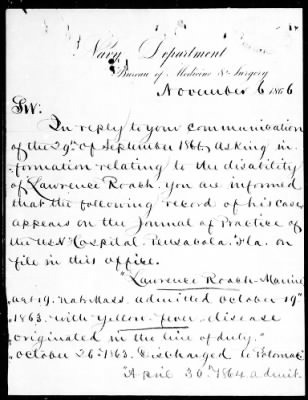 Navy Department
Bureau of Medicine & Surgery
November 6 1866
Sir:
In reply to your communication
of the 29th of September 1866, asking in-
formation relating to the disability
of Lawrence Roach, you are informed
that the following record of his case
appears on the Journal of Practice of
the U.S.N. Hospital. Pensacola. Fla. on
file in this office.
"Lawrence Roach - Marine
aet 19. Nat: Mass. admitted October 19th
1863. with yellow-fever - disease
originated in the line of duty."
October 26th 1863. Discharged to Potomac"
"April 30th 1864. admit-